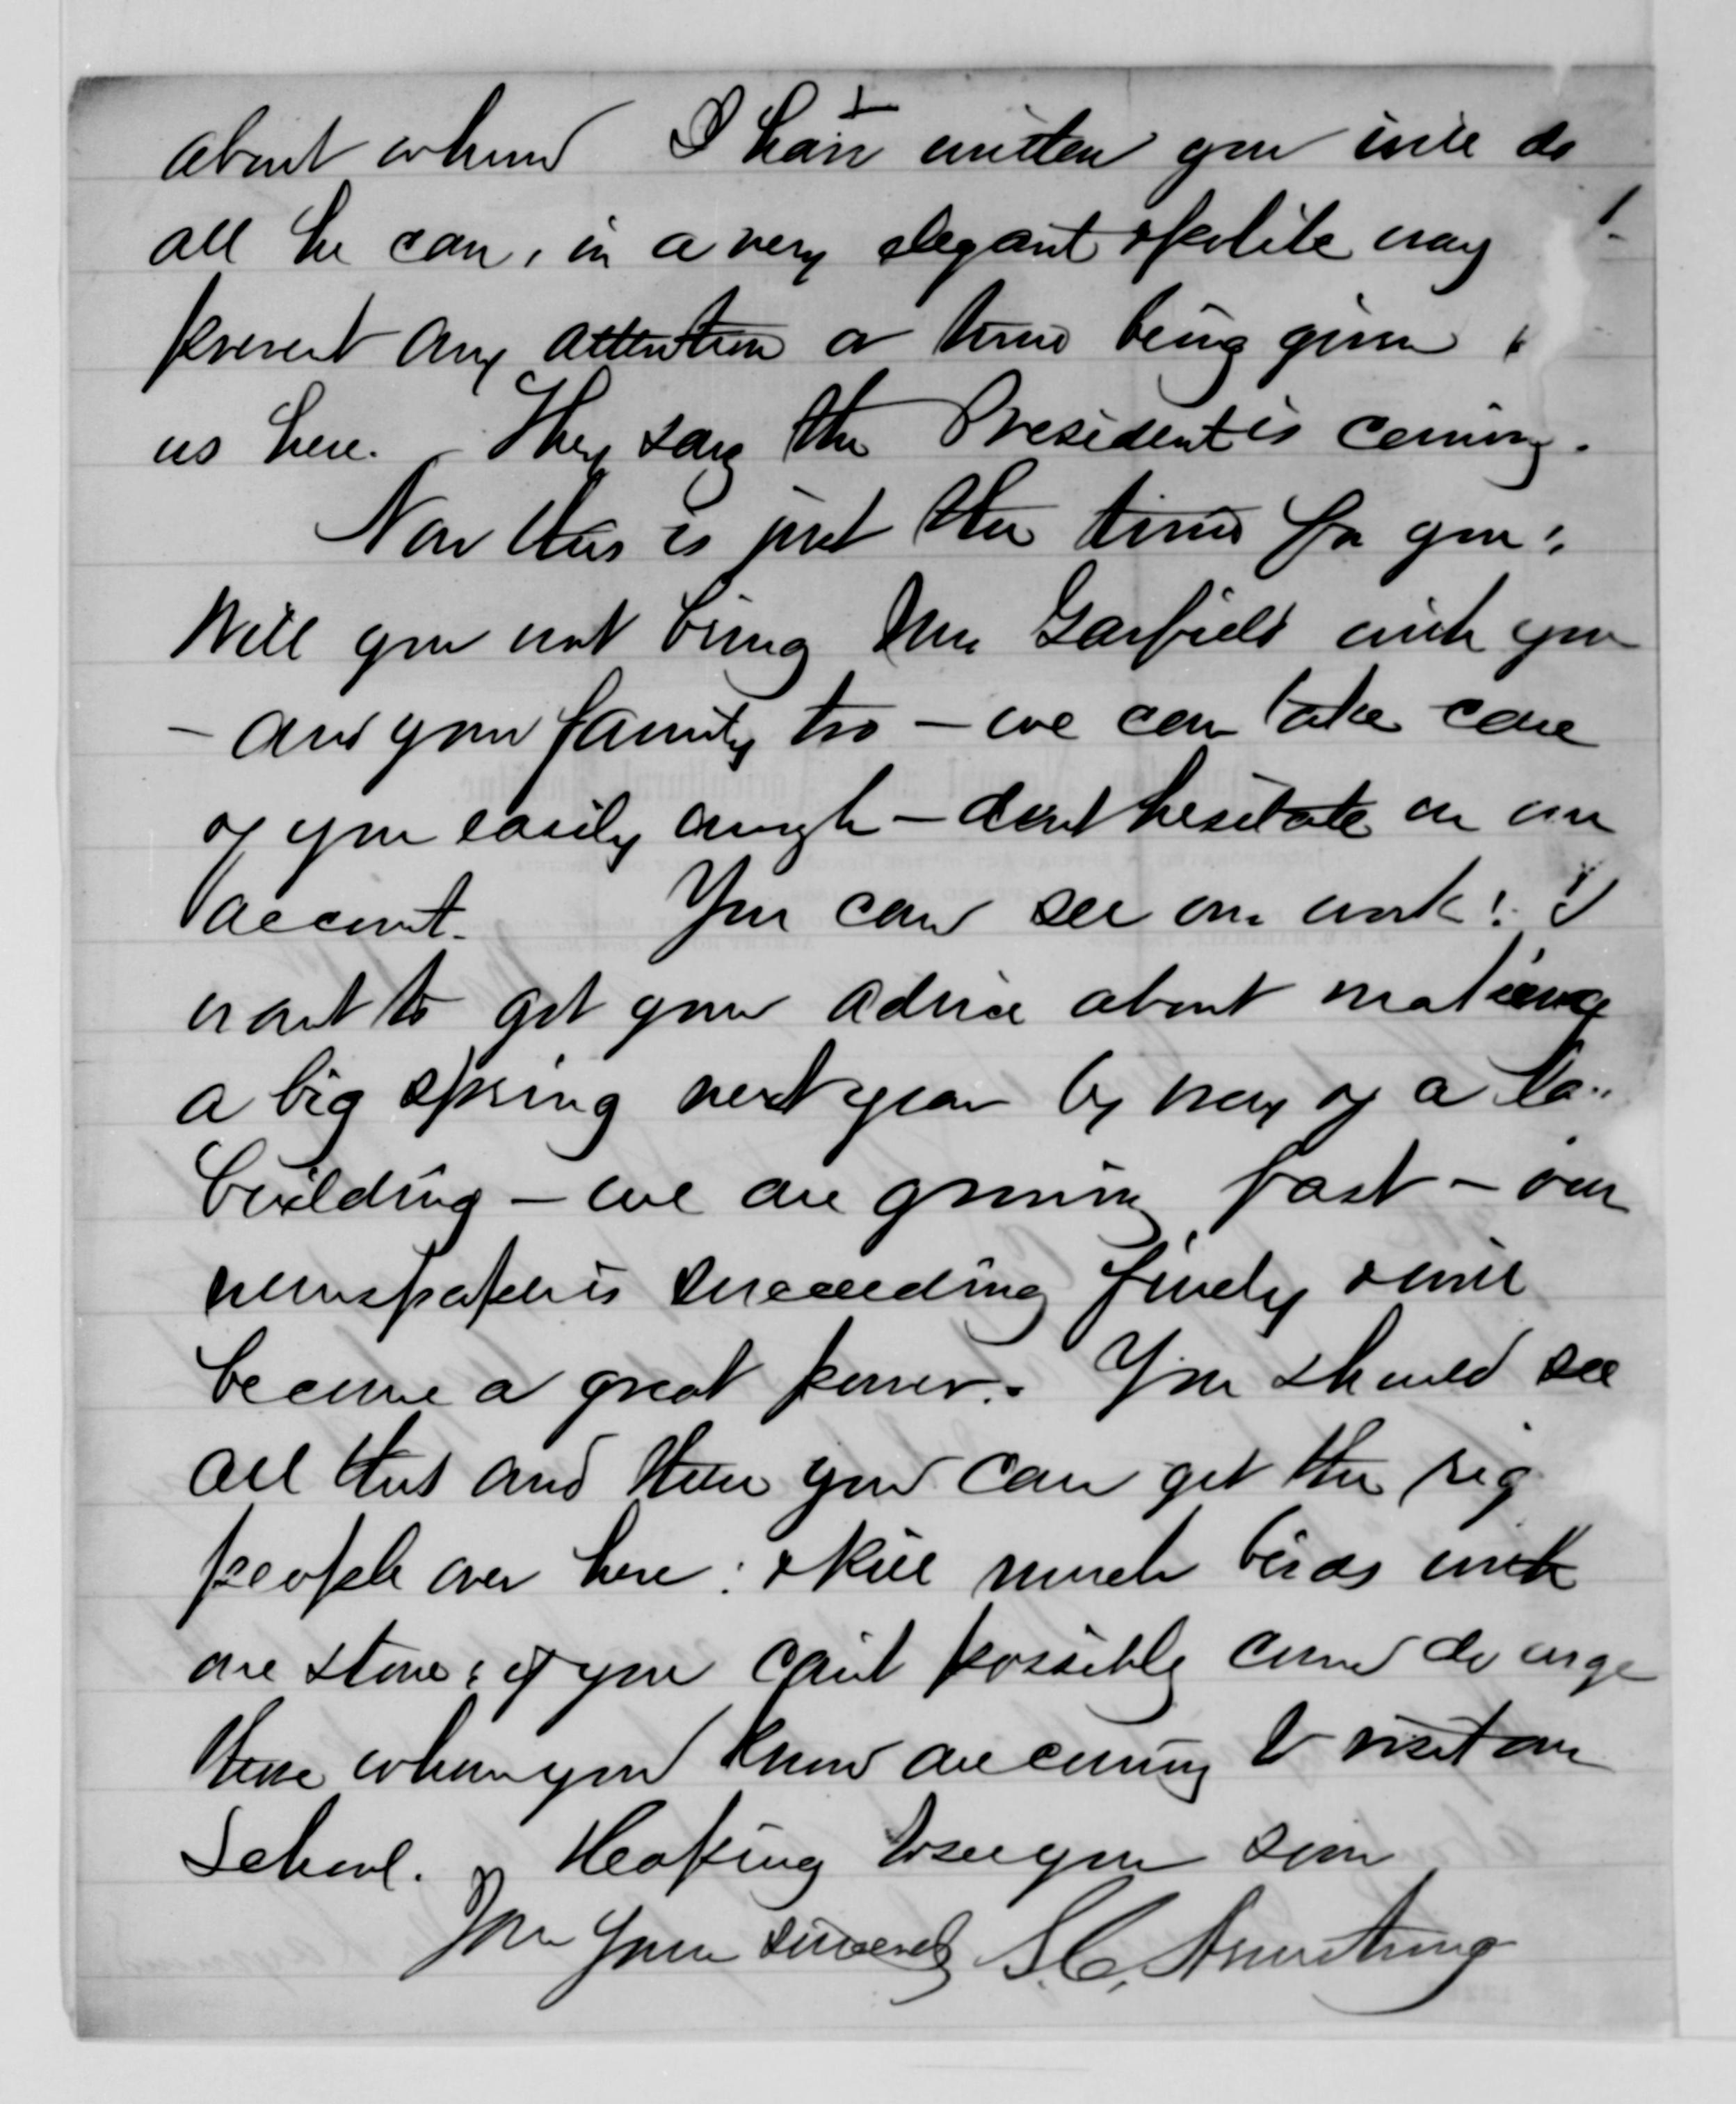 about whom I have written you will do
all he can, in a very elegant & polite way
prevent any attention or time being given
us here. They say the President is coming.
Now this is just the time for you:
Will you not bring Mrs Garfield with you
- and your family too - we can take care
of you easily enough - dont hesitate on our
account. You can see our work: I
want to get your advice about making
a big spring next year by way of a
building - we are growing fast - our
newspaper is succeeding finely & will
become a great power. You should see
all this and then you can get the
people over here: & kill much birds with
one stone; if you can't possibly come do urge
those whom you know are coming to visit our
School. Hoping to see you soon
Yours sincerely S.C. Armstrong